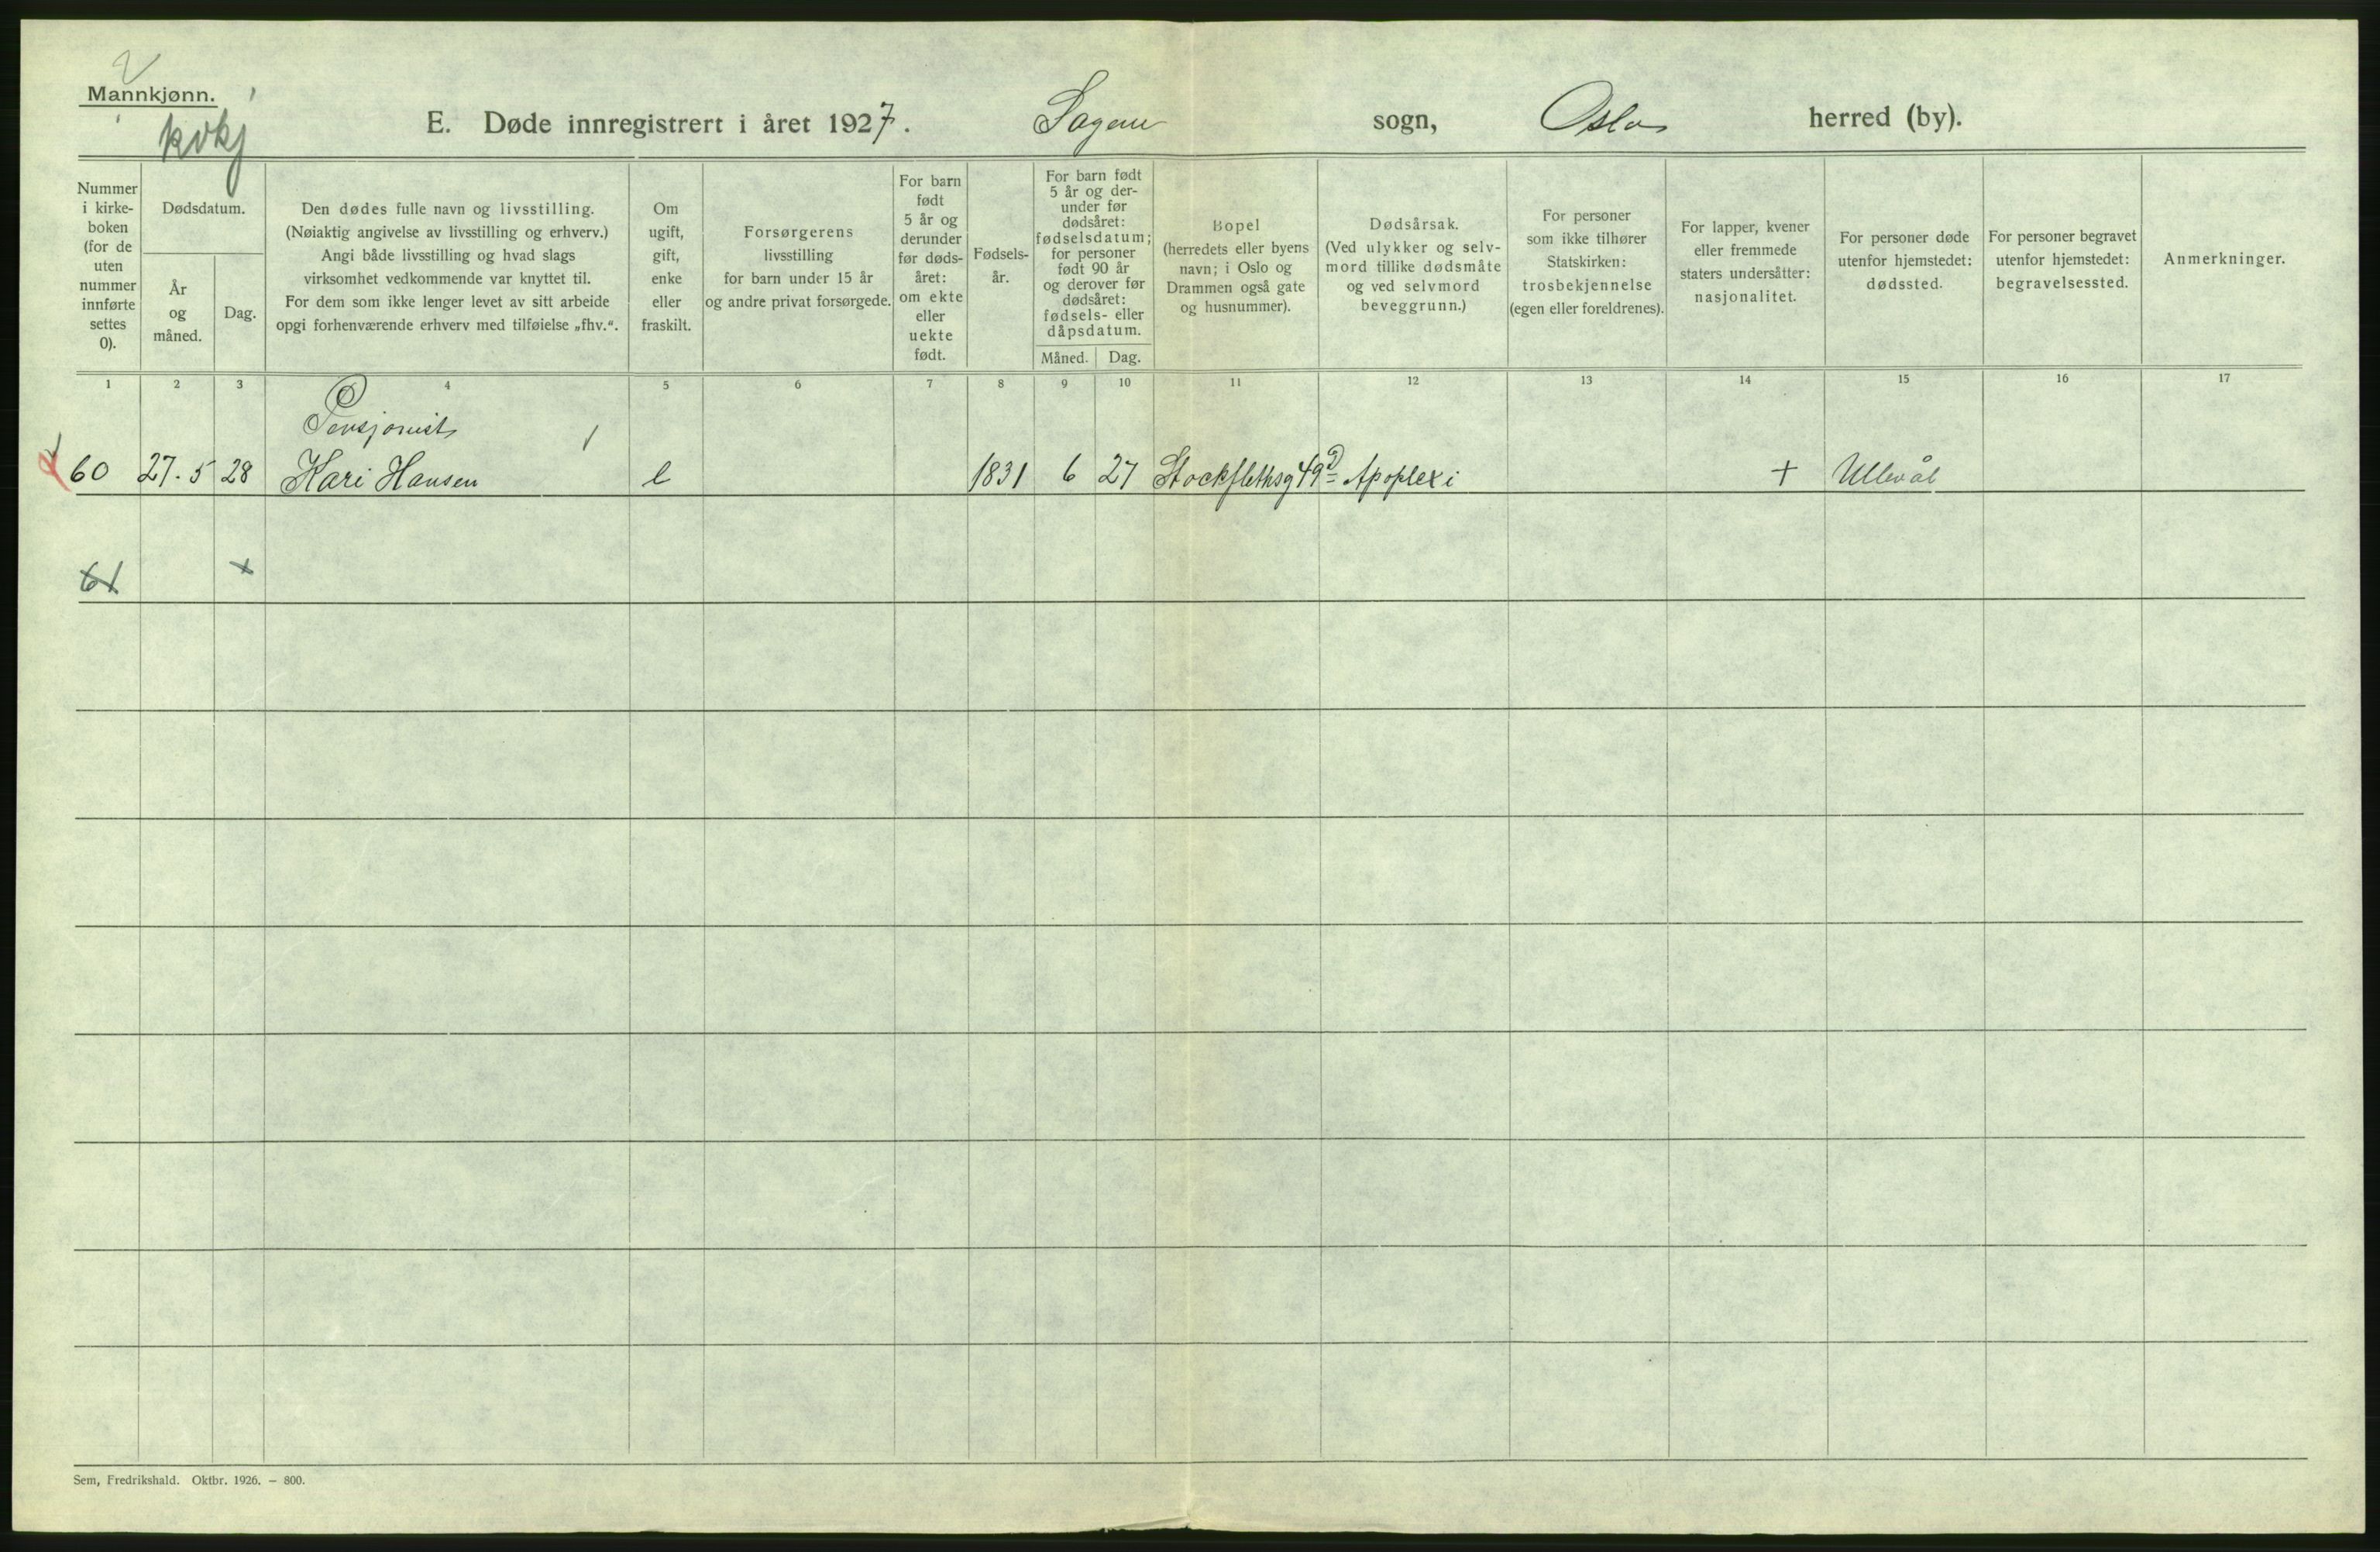 Mannkjønn.
kvkj
E. Døde innregistrert i året 1927. Sagene sogn, Oslo herred (by).
Nummer
i kirke-
boken
(for de
uten
nummer
innførte
settes
0).
Dødsdatum.
År
og
måned.
Dag.
Den dødes fulle navn og livsstilling.
(Nøiaktig angivelse av livsstilling og erhverv.)
Angi både livsstilling og hvad slags
virksomhet vedkommende var knyttet til.
For dem som ikke lenger levet av sitt arbeide
opgi forhenværende erhverv med tilføielse „fhv.“.
Om
ugift,
gift,
enke
eller
fraskilt.
Forsørgerens
livsstilling
for barn under 15 år
og andre privat forsørgede.
For barn
født
5 år og
derunder
før døds-
året:
om ekte
eller
uekte
født.
Fødsels-
år.
For barn født
5 år og der-
under før
dødsåret:
fødselsdatum;
for personer
født 90 år
og derover før
dødsåret:
fødsels- eller
dåpsdatum.
Måned. Dag.
Bopel
(herredets eller byens
navn; i Oslo og
Drammen også gate
og husnummer).
Dødsårsak.
(Ved ulykker og selv-
mord tillike dødsmåte
og ved selvmord
beveggrunn.)
For personer
som ikke tilhører
Statskirken:
trosbekjennelse
(egen eller foreldrenes).
For lapper, kvener
eller fremmede
staters undersåtter:
nasjonalitet.
For personer døde
utenfor hjemstedet:
dødssted.
For personer begravet
utenfor hjemstedet:
begravelsessted.
Anmerkninger.
1 2 3 4 5 6 7 8 9 10 11 12 13 14 15 16 17
Pensjonist
60 27.5 28 Kari Hansen e 1831 6 27 Stockflethsg 49d Apoplexi + Ullevål
61 +
Sem, Fredrikshald. Oktbr. 1926. — 800.